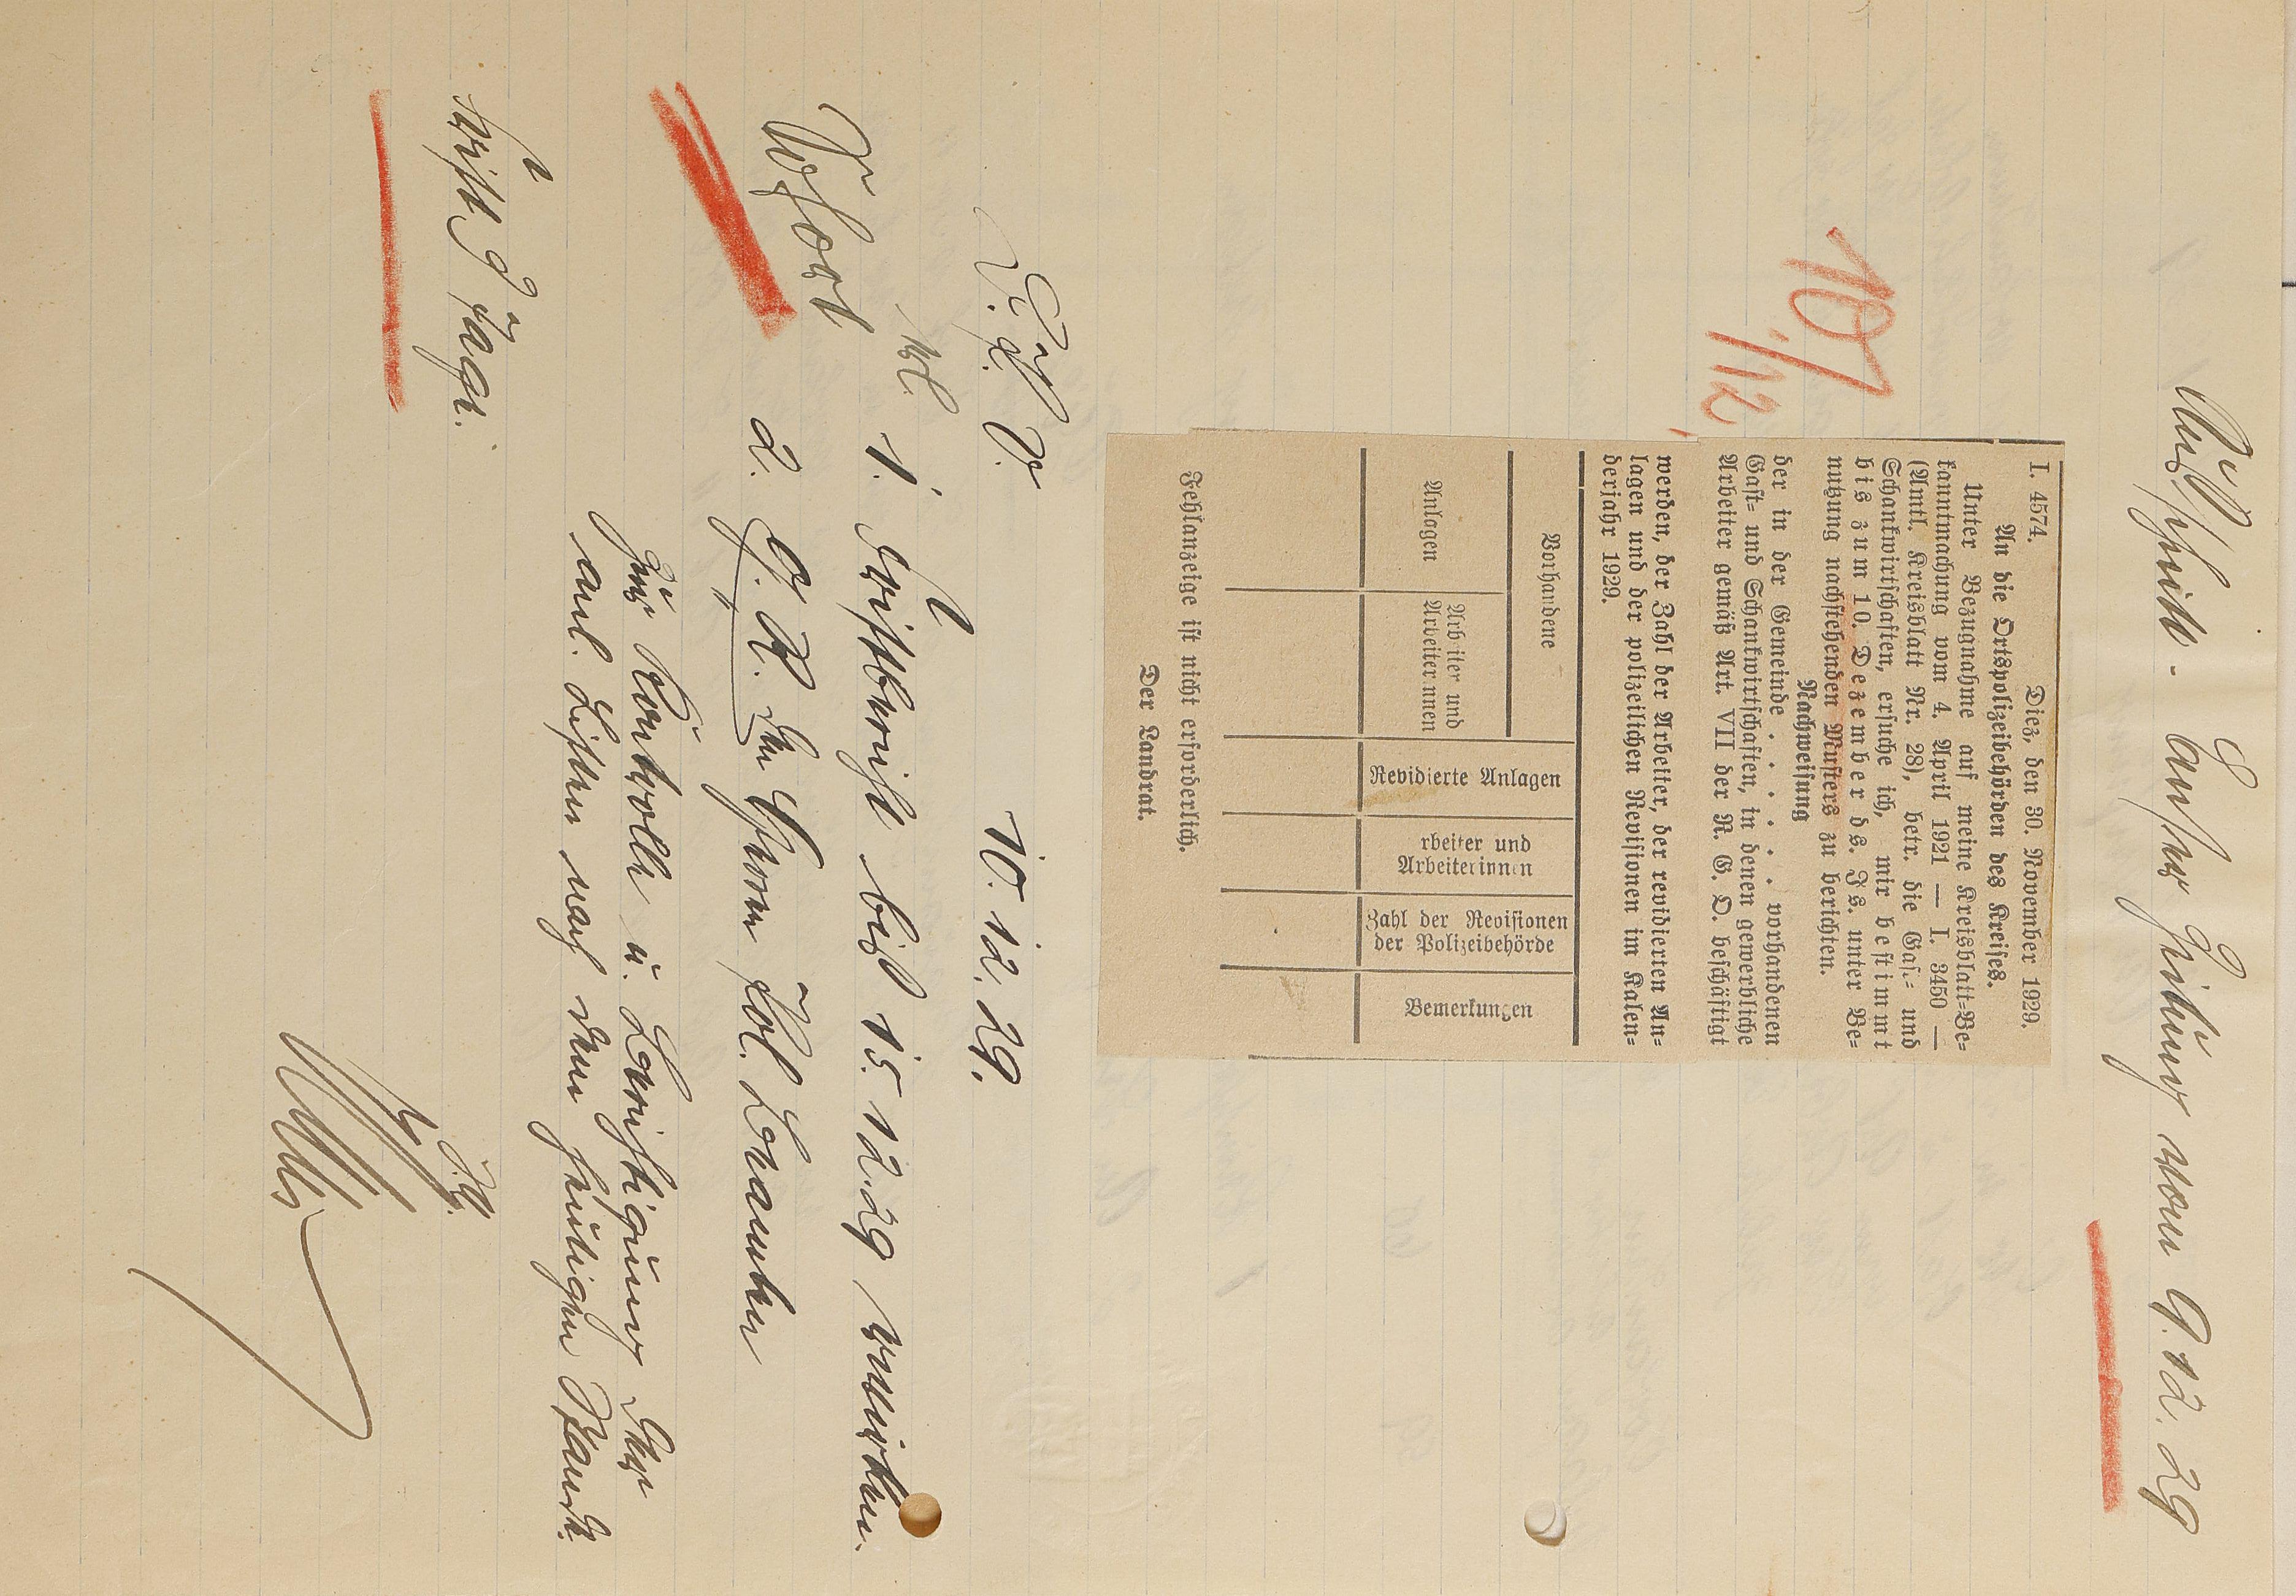 Ausschnitt - Emser Zeitung vom 9.12.29
10./12.
I. 4574. Diez, den 30. November 1929.
An die Ortspolizeibehörden des Kreises.
Unter Bezugnahme auf meine Kreisblatt=Be=
kanntmachung vom 4. April 1921 — I. 3450 —
(Amtl. Kreisblatt Nr. 28), betr. die Gast= und
Schankwirtschaften, ersuche ich, mir bestimmt
bis zum 10. Dezember ds. Js. unter Be=
nutzung nachstehenden Musters zu berichten.
Nachweisung
der in der Gemeinde . . . . . . vorhandenen
Gast= und Schankwirtschaften, in denen gewerbliche
Arbeiter gemäß Art. VII der R. G. O. beschäftigt
werden, der Zahl der Arbeiter, der revidierten An=
lagen und der polizeilichen Revisionen im Kalen=
derjahr 1929.
Vorhandene
Anlagen
Arb iter und
Arbeiterinnen
Revidierte Anlagen
rbeiter und
Arbeiterinnen
Zahl der Revisionen
der Polizeibehörde
Bemerkungen
Fehlanzeige ist nicht erforderlich.
Der Landrat.
10.12.29.
Sofort
1. Fristbericht bis 15.12.29 vermerken.
2. Herrn Pol. Beamten
zur Kontrolle u. Berichtigung der
anl. Listen nach dem heutigen Stande.
Frist 9 Tage.